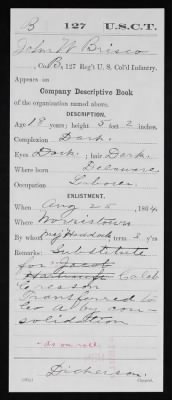 B | 127 | U.S.C.T.
John W Brisco
, Co. B, 127 Reg't U. S. Col'd Infantry.
Appears on
Company Descriptive Book
of the organization named above.
DESCRIPTION.
Age 18 years; height 5 feet 2 inches.
Complexion Dark.
Eyes Dark.; hair Dark.
Where born Delaware
Occupation Laborer.
ENLISTMENT.
When Aug 25, 1864.
Where Norristown
By whom ; term 3 y'rs
Remarks: Substitute
for Jacob
Caleb
Cresson
Transferred to
Co A by con-
solidation
- as on roll
Dickerson.
Copyist.